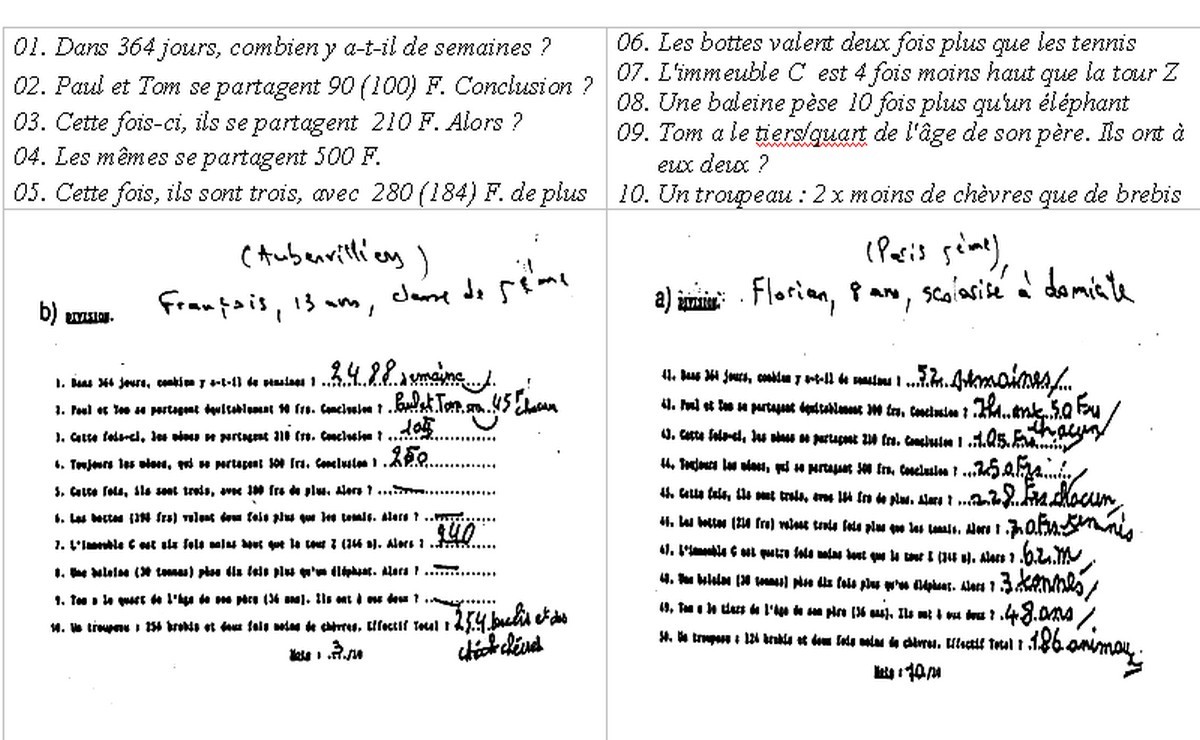 01. Dans 364 jours, combien y a-t-il de semaines ?
02. Paul et Tom se partagent 90 (100) F. Conclusion ?
03. Cette fois-ci, ils se partagent 210 F. Alors ?
04. Les mêmes se partagent 500 F.
05. Cette fois, ils sont trois, avec 280 (184) F. de plus
06. Les bottes valent deux fois plus que les tennis
07. L'immeuble C est 4 fois moins haut que la tour Z
08. Une baleine pèse 10 fois plus qu'un éléphant
09. Tom a le tiers/quart de l'âge de son père. Ils ont à
eux deux ?
10. Un troupeau : 2 x moins de chèvres que de brebis
(Aubervilliers)
François, 13 ans, classe de 5ème
b) DIVISION.
1. Dans 364 jours, combien y a-t-il de semaines ? 2488 semaine
2. Paul et Tom se partagent équitablement 90 frs. Conclusion ? Paul et Tom 45F chacun
3. Cette fois-ci, les mêmes se partagent 210 frs. Conclusion ? 105
4. Toujours les mêmes, qui se partagent 500 frs. Conclusion ? 250
5. Cette fois, ils sont trois, avec frs de plus. Alors ?
6. Les bottes frs) valent deux fois plus que les tennis. Alors ?
7. L'immeuble C est six fois moins haut que la tour Z (246 m). Alors ?
8. Une baleine (30 tonnes) pèse dix fois plus qu'un éléphant. Alors ?
9. Tom a le quart de l'âge de son père (36 ans). Ils ont à eux deux ?
10. Un troupeau : brebis et deux fois moins de chèvres. Effectif Total ? 254 et des
chèvres
Note : 3/10
(Paris 5ème)
Florian, 8 ans, scolarisé à domicile
a) DIVISION.
41. Dans 364 jours, combien y a-t-il de semaines ? 52 semaines
42. Paul et Tom se partagent équitablement 100 frs. Conclusion ? Ils ont 50 Frs
chacun
43. Cette fois-ci, les mêmes se partagent 210 frs. Conclusion ? 105 Frs
44. Toujours les mêmes, qui se partagent 500 frs. Conclusion ? 250 Frs
45. Cette fois, ils sont trois, avec 184 frs de plus. Alors ? 228 Frs chacun
46. Les bottes (210 frs) valent trois fois plus que les tennis. Alors ? 70 Frs
47. L'immeuble C est quatre fois moins haut que la tour Z m). Alors ? 62 m
48. Une baleine (30 tonnes) pèse dix fois plus qu'un éléphant. Alors ? 3 tonnes
49. Tom a le tiers de l'âge de son père (36 ans). Ils ont à eux deux ? 48 ans
50. Un troupeau : 124 brebis et deux fois moins de chèvres. Effectif Total ? 186 animaux
Note : 10/10